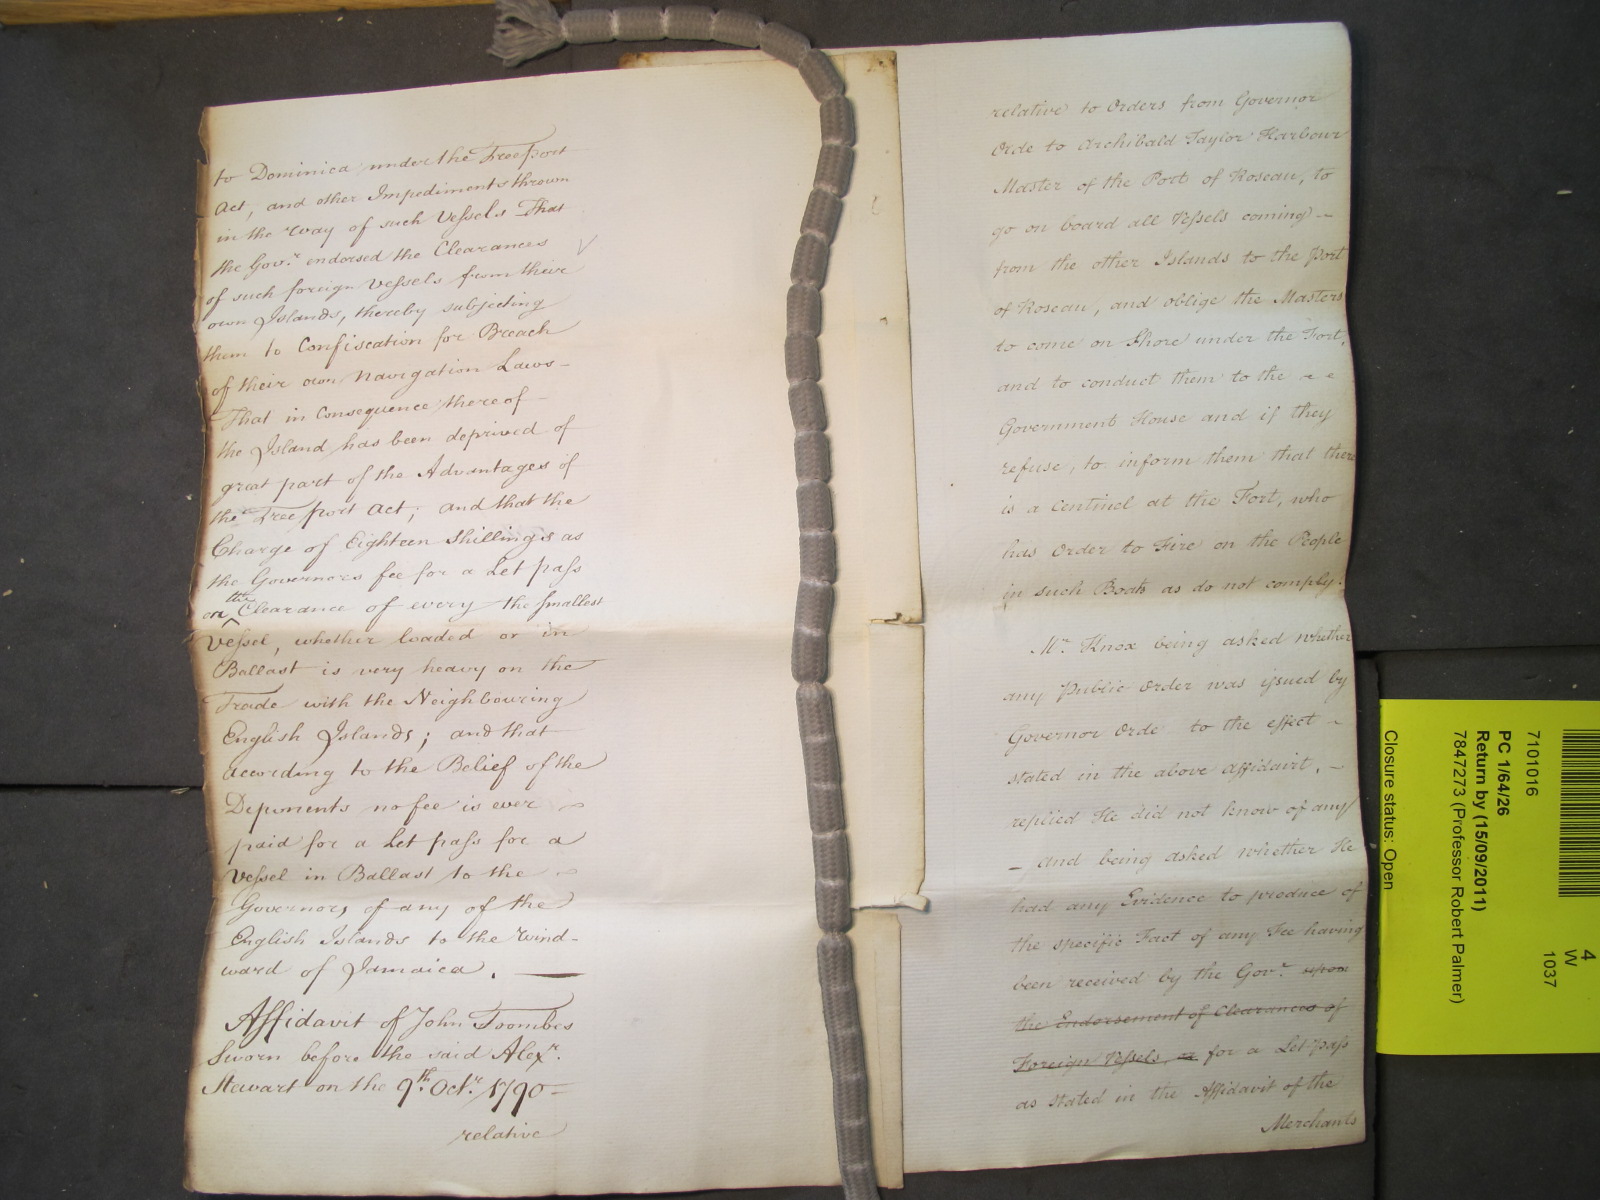 to Dominica under the Free port
Act, and other Impediments thrown
in the way of such Vessels That
the Gov.r endorsed the Clearances
of such foreign Vessels from their
own Islands, thereby subjecting
them to Confiscation for Breach
of their own Navigation Laws -
That in Consequence thereof -
the Island has been deprived of
great part of the Advantages of
the Free port Act; and that the
Charge of Eighteen Shillings as
the Governors fee for a Let pass
on the Clearance of every the smallest
Vessel, whether loaded or in
Ballast is very heavy on the
Trade with the Neighbouring
English Islands; and that
according to the Belief of the
Deponents no fee is ever
paid for a Let pass for a
Vessel in Ballast to the
Governors of any of the
English Islands to the Wind-
ward of Jamaica. —
Affidavit of John Toombes
Sworn before the said Alex.r
Stewart on the 9.th Oct.r 1790 =
relative
relative to Orders from Governor
Orde to Archibald Taylor Harbour
Master of the Port of Roseau, to
go on board all Vessels coming -
from the other Islands to the Port
of Roseau, and oblige the Masters
to come on Shore under the Fort,
and to conduct them to the
Government House and if they
refuse, to inform them that there
is a Centinel at the Fort, who
has Order to Fire on the People
in such Boats as do not comply.
Mr. Knox being asked whether
any Public Order was issued by
Governor Orde to the effect -
stated in the above affidavit. -
replied He did not know of any
- And being asked whether He
had any Evidence to produce of
the specific Fact of any Fee having
been received by the Gov.r upon
the Endorsement of Clearances of
Foreign Vessels, or for a Let-pass
as stated in the Affidavit of the
Merchants
7101016
PC 1/64/26
Return by (15/09/2011)
7847273 (Professor Robert Palmer)
Closure status: Open
4
W
1037